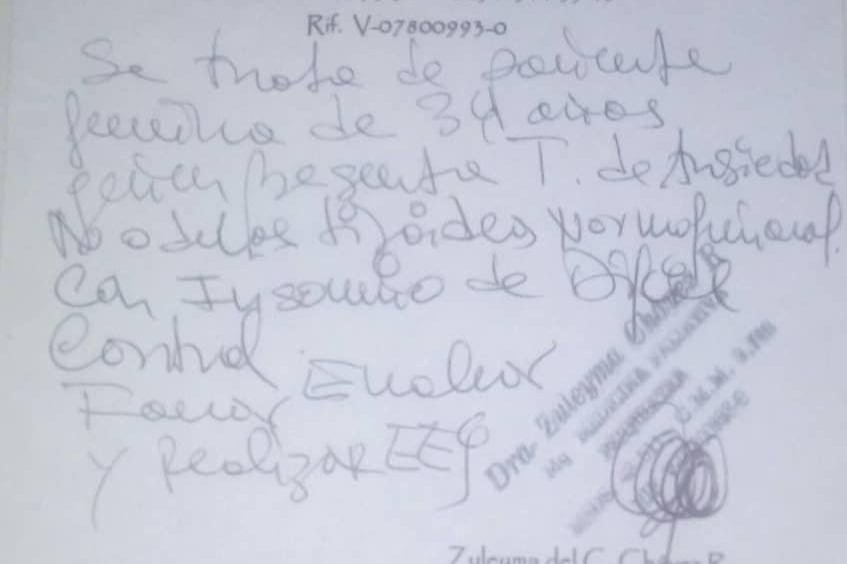 Rif. V-07800993-0
Se trata de paciente
femenina de 34 años
quien presenta T. de Ansiedad
Nodulos tiroideos Normofuncional.
Con Insomnio de Difícil
Control
Favor Evaluar
y Realizar EEG
Dra. Zuleyma
Zuleyma del C. R.